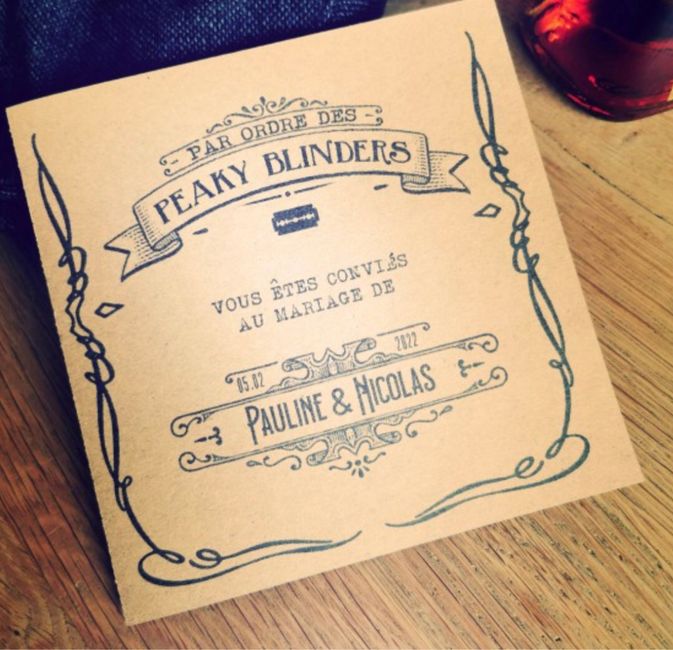 PAR ORDRE DES
PEAKY BLINDERS
VOUS ÊTES CONVIÉS
AU MARIAGE DE
05.02 2022
PAULINE & NICOLAS